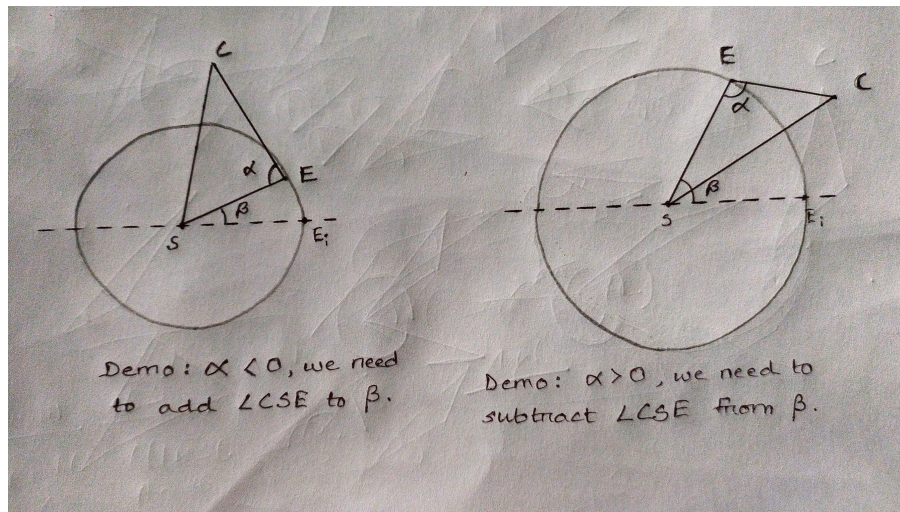 C
α
E
β
S
Ei
Demo: α < 0, we need
to add ∠CSE to β.
E
C
α
β
S
Ei
Demo: α > 0, we need to
subtract ∠CSE from β.